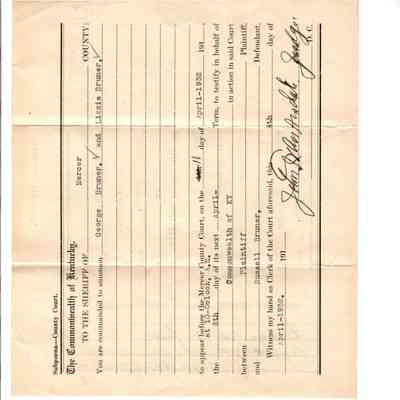 Subpoena—County Court.
The Commonwealth of Kentucky.
Mercer
TO THE SHERIFF OF COUNTY:
You are commanded to summon George Bruner, and Lizzie Bruner,
to appear before the Mercer County Court, on the 11 day of April-1932 191
at 10-oclock, A.M.
the 8th day of its next April- Term, to testify in behalf of
Commonwealth of KY in action in said Court
between Plaintiff Plaintiff,
and Russell Bruner, Defendant,
Witness my hand as Clerk of the Court aforesaid, this 8th day of
April-1932. 191
Judge
D. C.